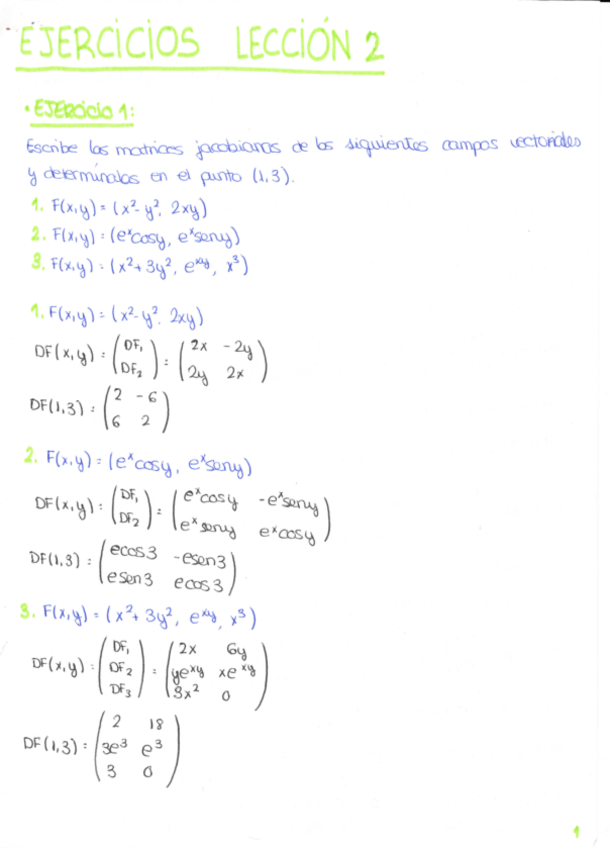 EJERCICIOS LECCIÓN 2
• EJERCICIO 1:
Escribe las matrices jacobianas de los siguientes campos vectoriales
y determínalas en el punto (1,3).
1. F(x,y) = (x²-y², 2xy)
2. F(x,y) = (eˣcosy, eˣseny)
3. F(x,y) = (x²+3y², e^xy, x³)
1. F(x,y) = (x²-y², 2xy)
DF(x,y) = (DF₁ DF₂) = (2x -2y
2y 2x)
DF(1,3) = (2 -6
6 2)
2. F(x,y) = (eˣcosy, eˣseny)
DF(x,y) = (DF₁ DF₂) = (eˣcosy -eˣseny
eˣseny eˣcosy)
DF(1,3) = (ecos3 -esen3
esen3 ecos3)
3. F(x,y) = (x²+3y², e^xy, x³)
DF(x,y) = (DF₁ DF₂ DF₃) = (2x 6y
ye^xy xe^xy
3x² 0)
DF(1,3) = (2 18
3e³ e³
3 0)
1